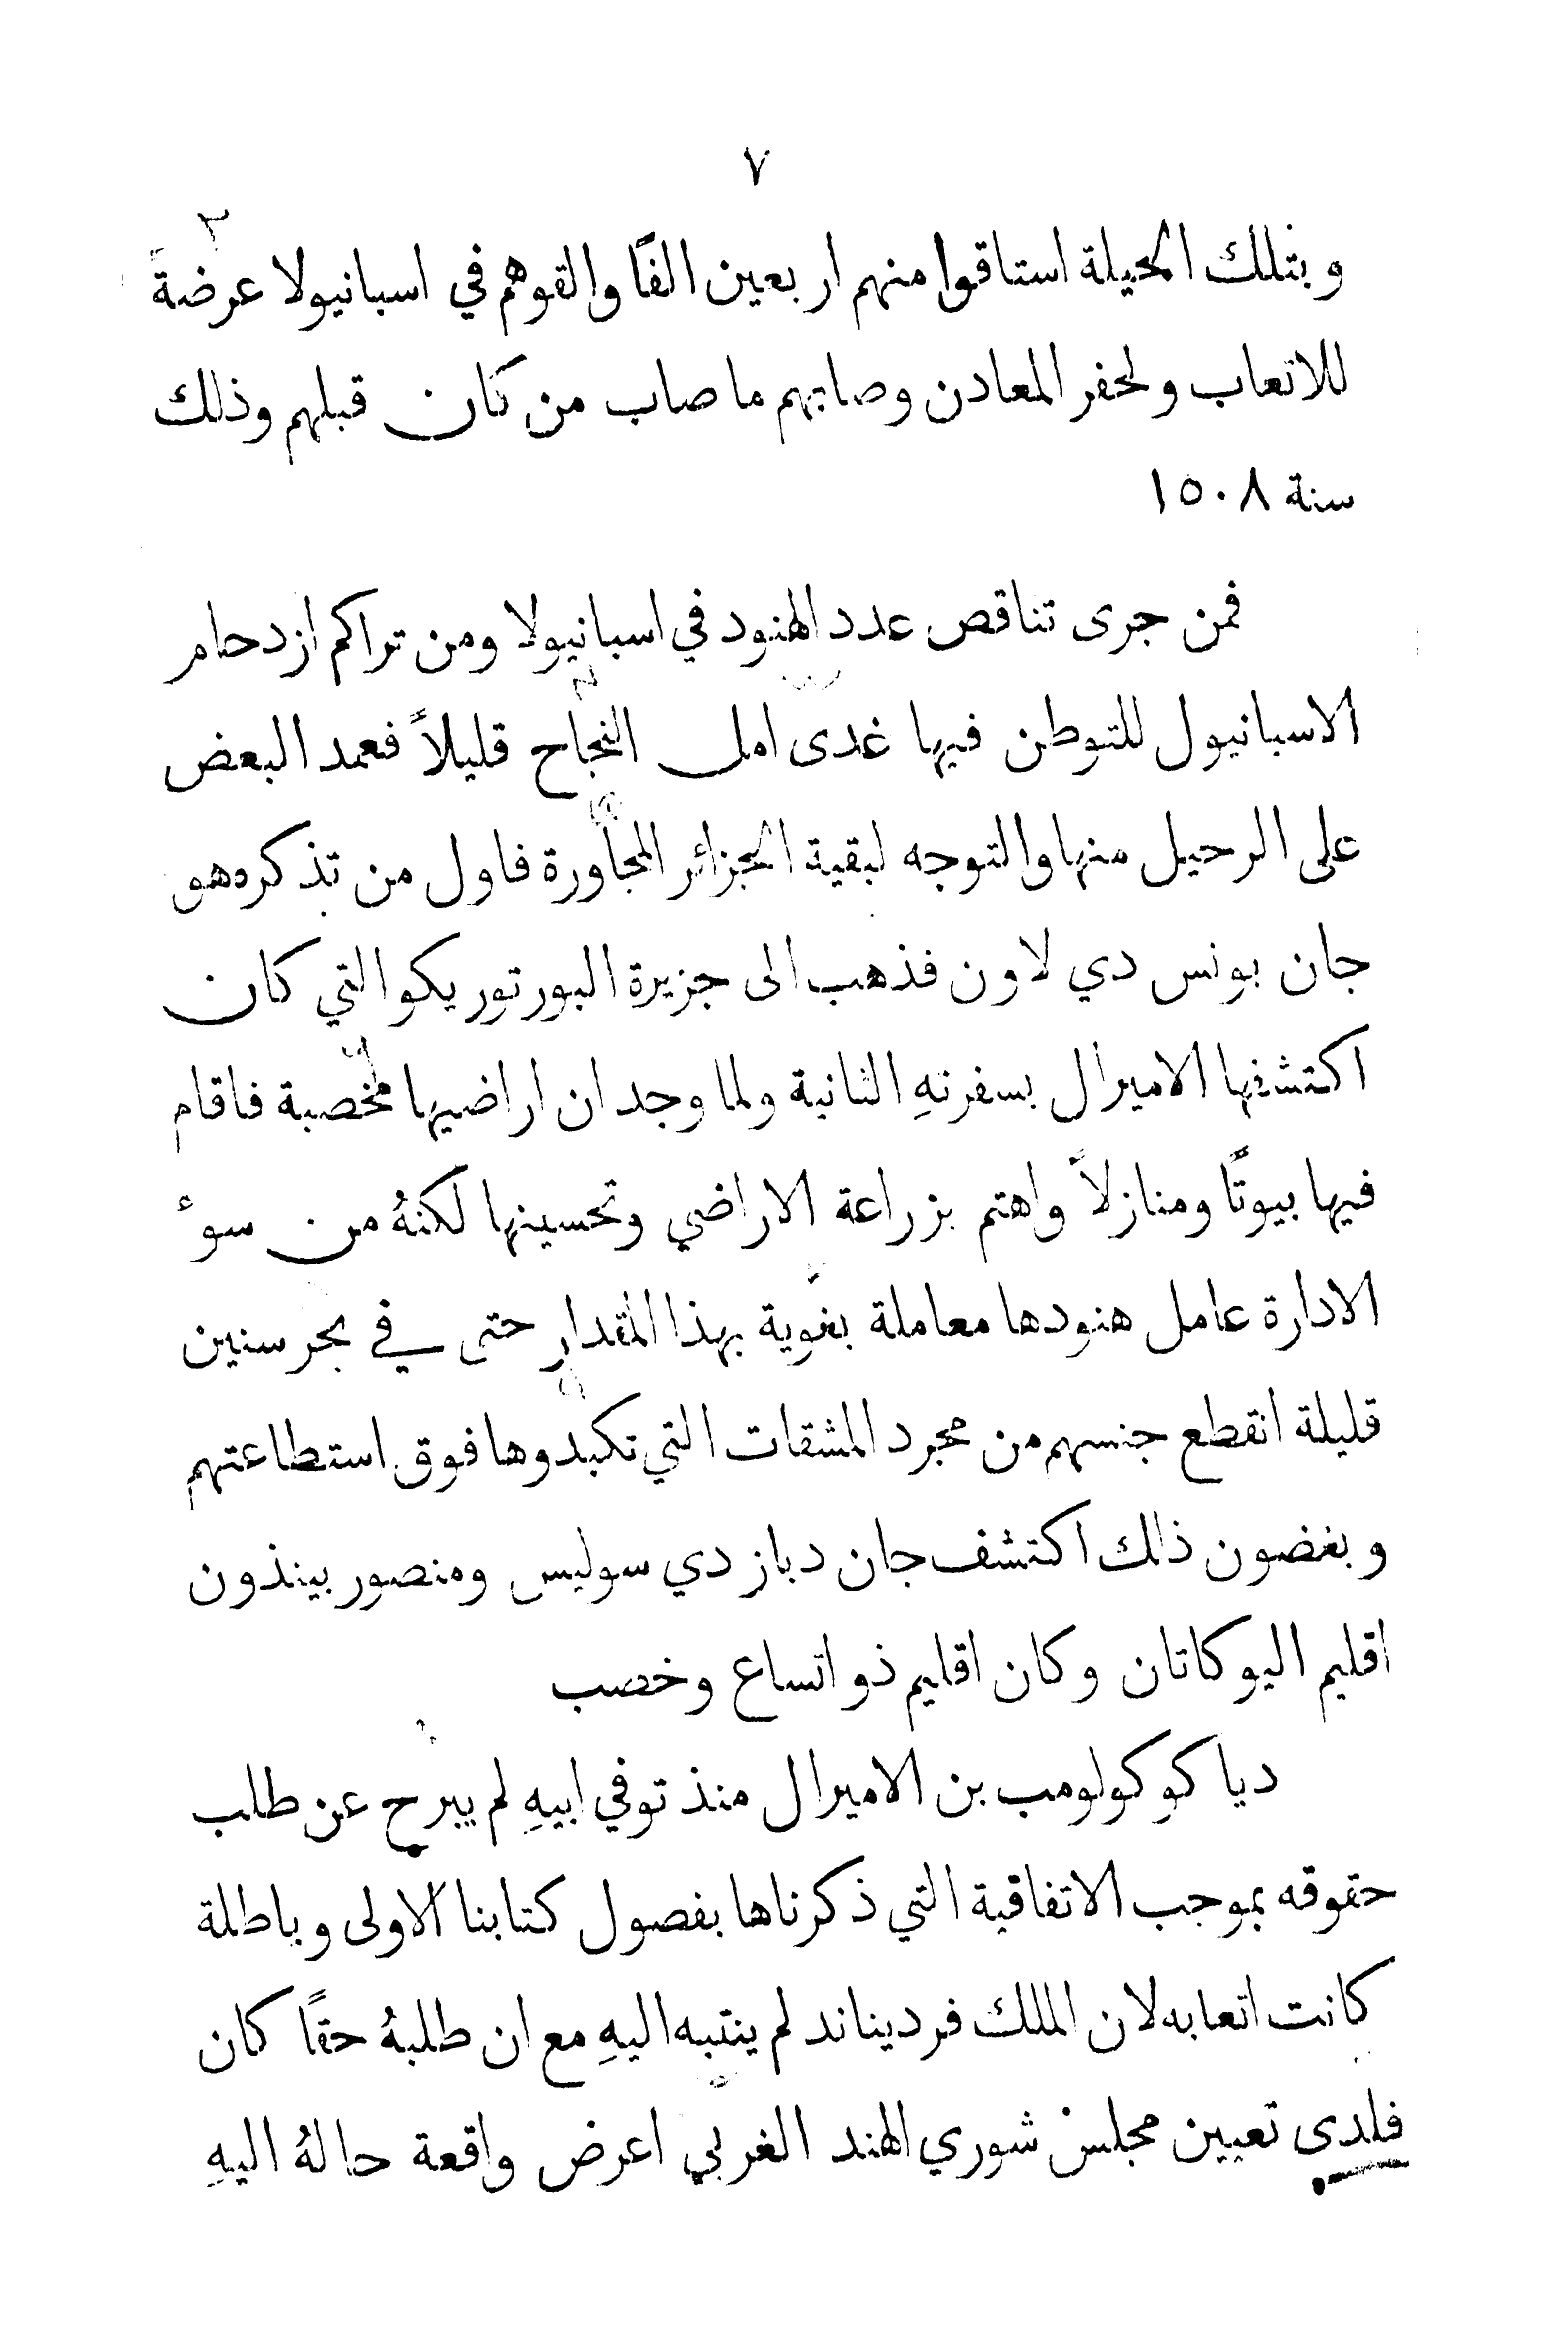 ٧
وبتلك الحيلة استاقوا منهم اربعين الفًا والقوهم في اسبانيولا عرضةً
للاتعاب ولحفر المعادن وصابهم ما صاب من كان قبلهم وذلك
سنة ١٥٠٨
فمن جرى تناقص عدد الهنود في اسبانيولا ومن تراكم ازدحام
الاسبانيول للتوطن فيها غدى امل النجاح قليلاً فعمد البعض
على الرحيل منها والتوجه لبقية الجزائر المجاورة فاول من تذكره هو
جان بونس دي لاون فذهب الى جزيرة البورتوريكو التي كان
اكتشفها الاميرال بسفرتهِ الثانية ولما وجد ان اراضيها مخصبة فاقام
فيها بيوتًا ومنازلاً واهتم بزراعة الاراضي وتحسينها لكنهُ من سوءِ
الادارة عامل هنودها معاملة بغوية بهذا المقدار حتى في بحر سنين
قليلة انقطع جنسهم من مجرد المشقات التي تكبدوها فوق استطاعتهم
وبغضون ذلك اكتشف جان دباز دي سوليس ومنصور بينذون
اقليم اليوكاتان وكان اقليم ذو اتساع وخصب
دياكو كولومب بن الاميرال منذ توفي ابيهِ لم يبرح عن طلب
حقوقه بموجب الاتفاقية التي ذكرناها بفصول كتابنا الاولى وباطلة
كانت اتعابه لان الملك فرديناند لم ينتبه اليهِ مع ان طلبهُ حقًا كان
فلدى تعيين مجلس شوري الهند الغربي اعرض واقعة حالهُ اليهِ